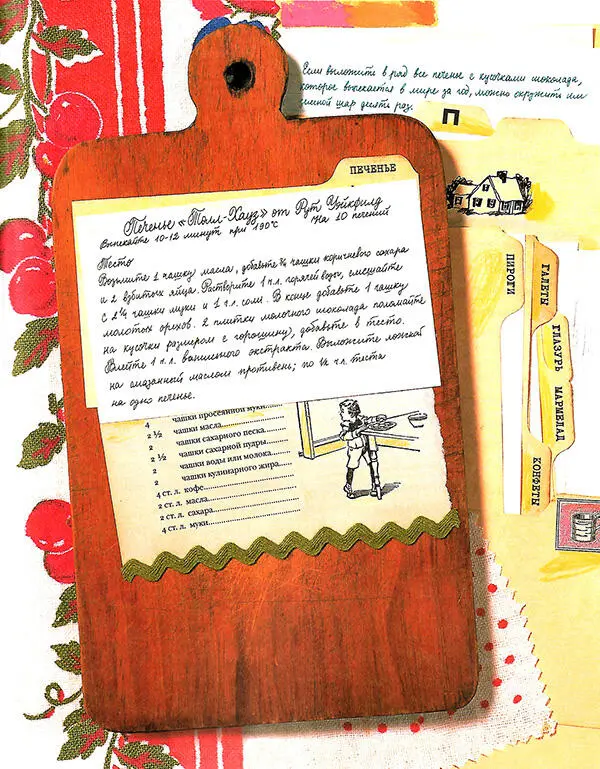 Если выложить в ряд все печенье с кусочками шоколада,
которое выпекается в мире за год, можно окружить им
земной шар десять раз.
П
ПЕЧЕНЬЕ
Печенье «Толл-Хауз» от Рут Уэйкфилд
Выпекайте 10-12 минут при 190°С На 10 печений
Тесто
Возьмите 1 чашку масла, добавьте ¾ чашки коричневого сахара
и 2 взбитых яйца. Растворите 1 ч.л. горячей воды, смешайте
с 2¼ чашки муки и 1 ч.л. соли. В конце добавьте 1 чашку
молотых орехов. 2 плитки молочного шоколада поломайте
на кусочки размером с горошину), добавьте в тесто.
Влейте 1 ч.л. ванильного экстракта. Выложите ложкой
на смазанный маслом противень; по ½ ч.л. теста
на одно печенье.
4 чашки просеянной муки
2 ½ чашки масла
2 чашки сахарного песка
2 ½ чашки сахарной пудры
2 чашки воды или молока
2 чашки кулинарного жира
4 ст. л. кофе
2 ст. л. масла
2 ст. л. сахара
4 ст. л. муки
ПИРОГИ
ГАЛЕТЫ
ГЛАЗУРЬ
МАРМЕЛАД
КОНФЕТЫ